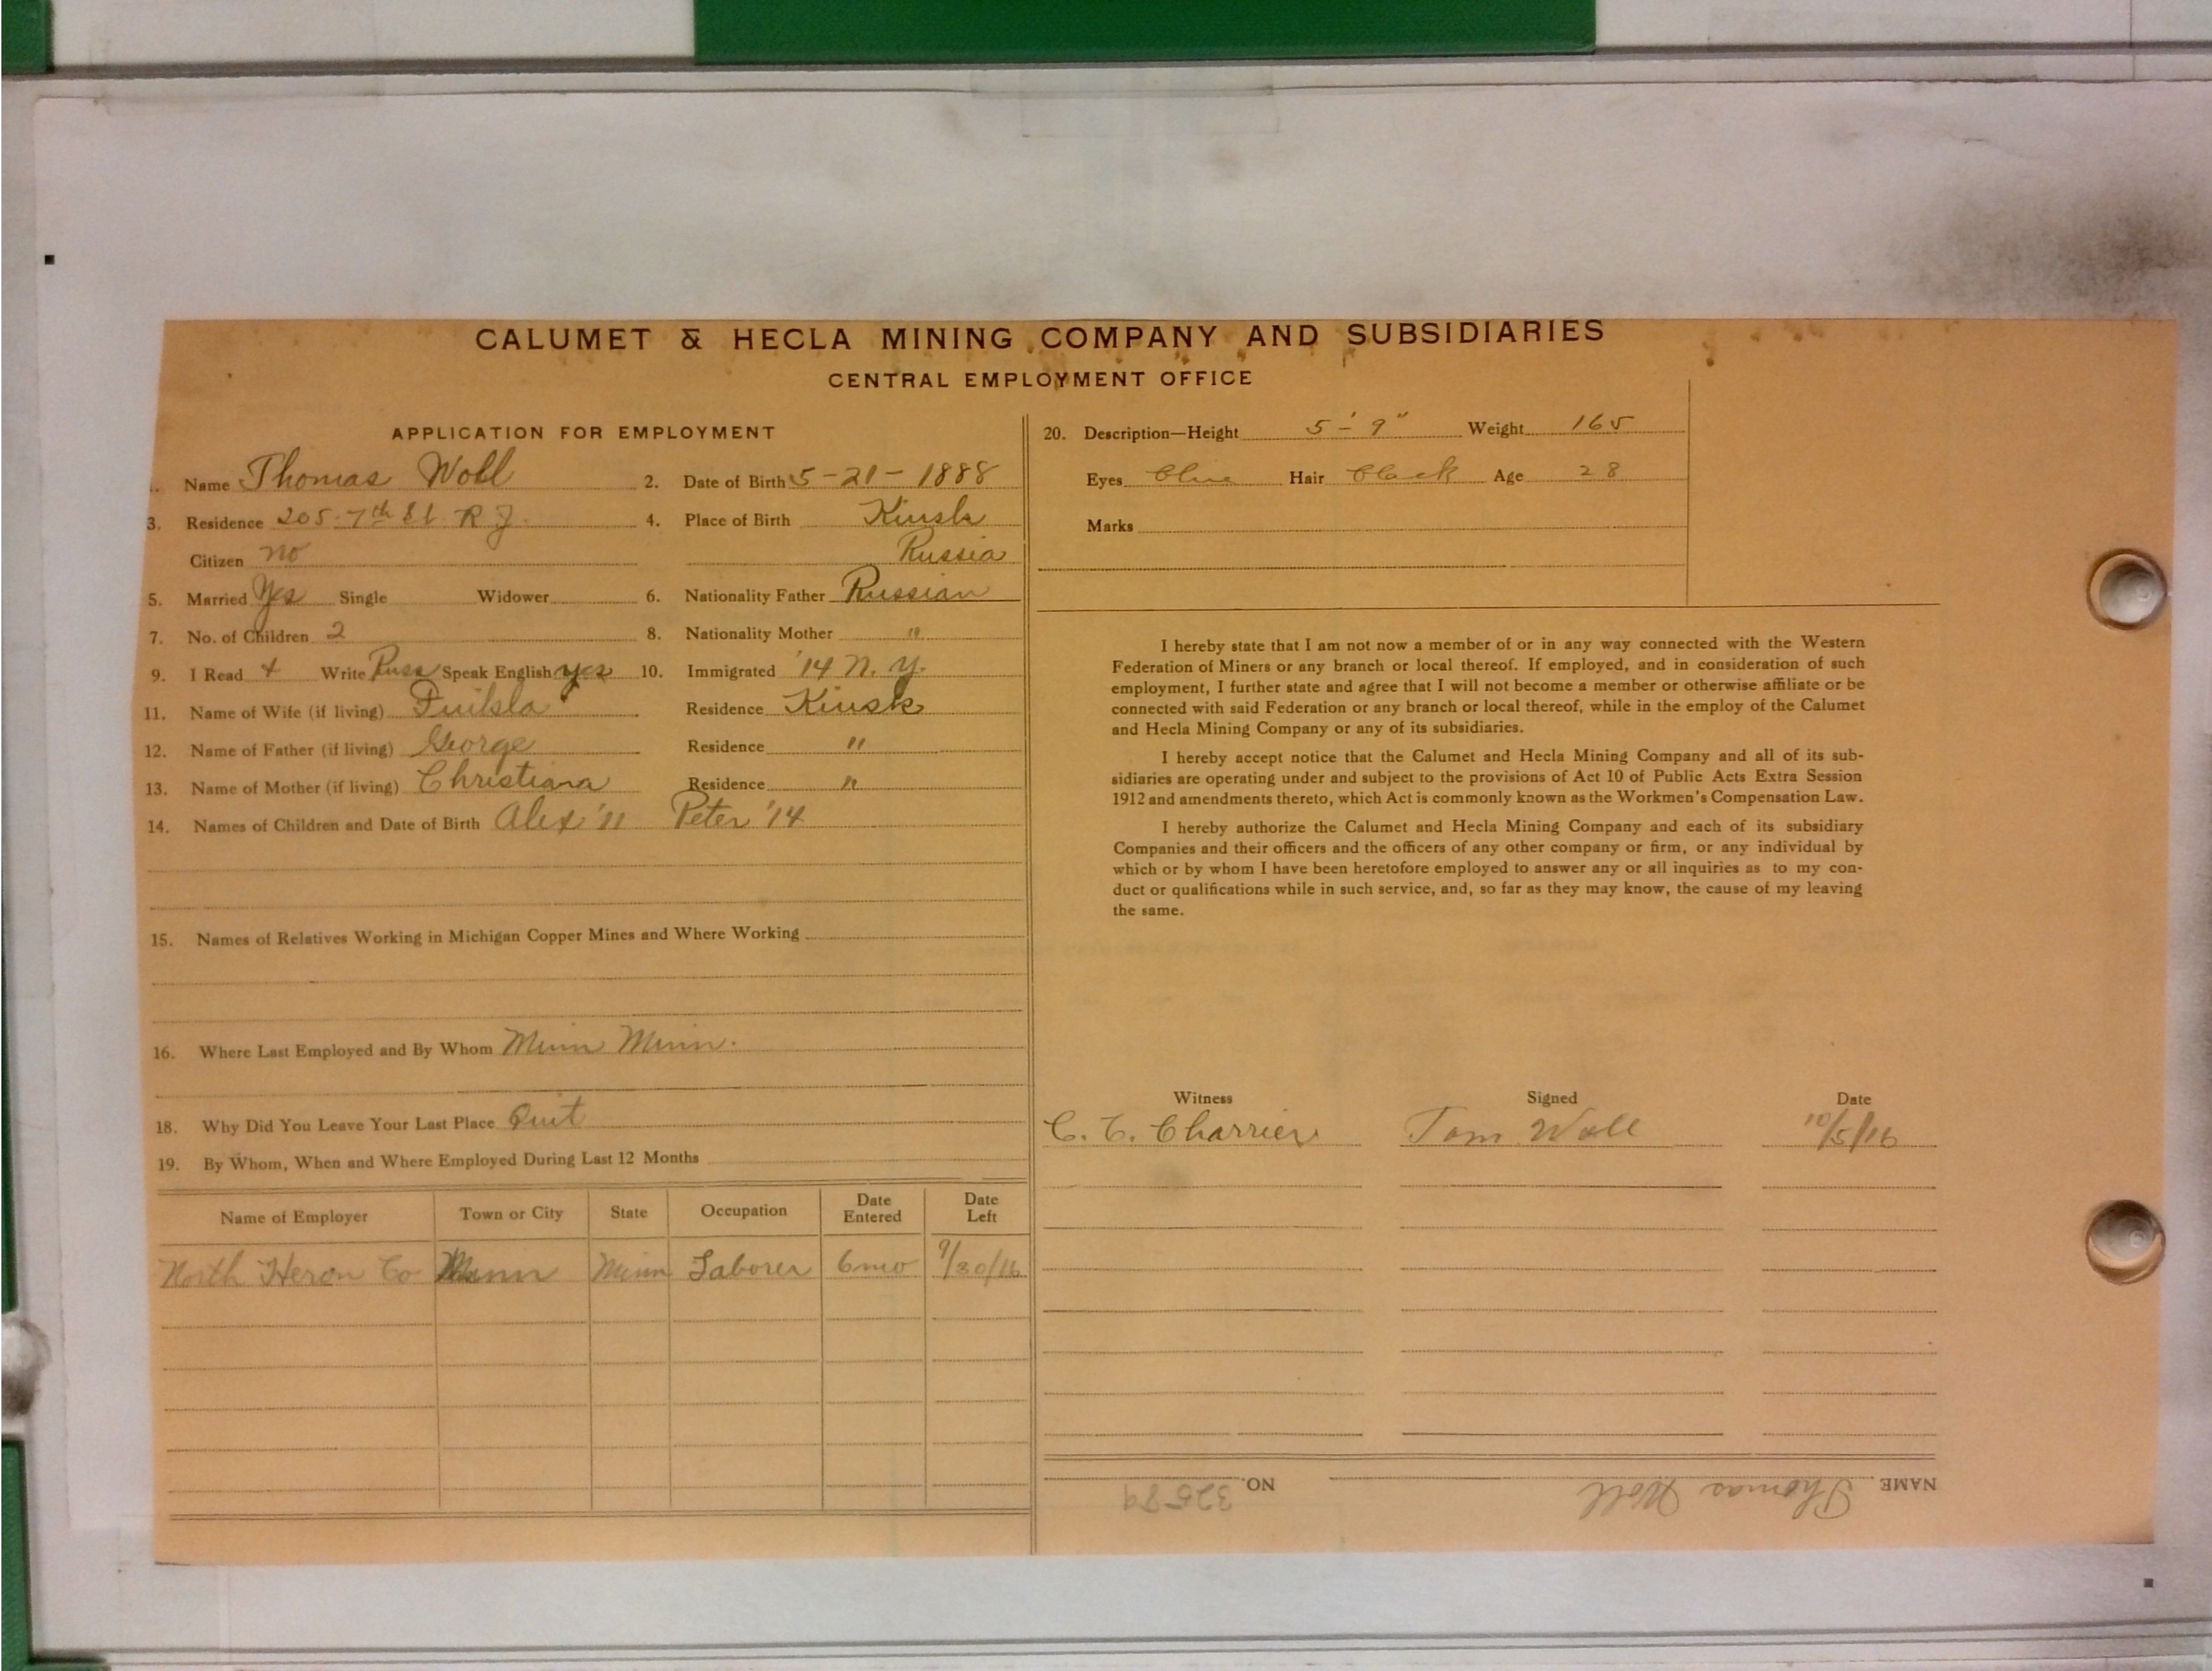 CALUMET & HECLA MINING COMPANY AND SUBSIDIARIES
CENTRAL EMPLOYMENT OFFICE
APPLICATION FOR EMPLOYMENT
Name Thomas Woll 2. Date of Birth 5-21-1888
3. Residence 205-7th St. R J. 4. Place of Birth Kinsk
Citizen no Russia
5. Married Yes Single Widower 6. Nationality Father Russian
7. No. of Children 2 8. Nationality Mother "
9. I Read + Write Russ Speak English yes 10. Immigrated '14 N.Y.
11. Name of Wife (if living) Residence Kinsk
12. Name of Father (if living) George Residence "
13. Name of Mother (if living) Christiana Residence "
14. Names of Children and Date of Birth Alex '11 Peter '14
15. Names of Relatives Working in Michigan Copper Mines and Where Working
16. Where Last Employed and By Whom Minn Minn.
18. Why Did You Leave Your Last Place Quit
19. By Whom, When and Where Employed During Last 12 Months
Name of Employer Town or City State Occupation Date Entered Date Left
North Heron Co Minn Minn Laborer 6mo 9/30/16
20. Description—Height 5'-9" Weight 165
Eyes Blue Hair Black Age 28
Marks
I hereby state that I am not now a member of or in any way connected with the Western
Federation of Miners or any branch or local thereof. If employed, and in consideration of such
employment, I further state and agree that I will not become a member or otherwise affiliate or be
connected with said Federation or any branch or local thereof, while in the employ of the Calumet
and Hecla Mining Company or any of its subsidiaries.
I hereby accept notice that the Calumet and Hecla Mining Company and all of its sub-
sidiaries are operating under and subject to the provisions of Act 10 of Public Acts Extra Session
1912 and amendments thereto, which Act is commonly known as the Workmen's Compensation Law.
I hereby authorize the Calumet and Hecla Mining Company and each of its subsidiary
Companies and their officers and the officers of any other company or firm, or any individual by
which or by whom I have been heretofore employed to answer any or all inquiries as to my con-
duct or qualifications while in such service, and, so far as they may know, the cause of my leaving
the same.
Witness Signed Date
C. T. Charrier Tom Woll 10/5/16
NAME Thomas Woll NO. 32589